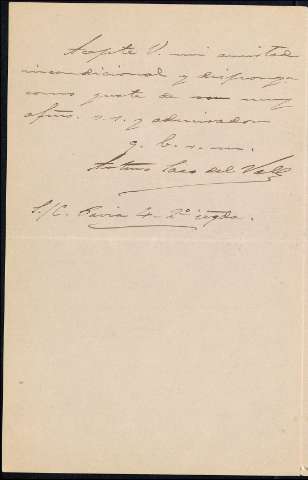 Acepte V. mi amistad
incondicional y disponga
como guste de su muy
afmo. s. s. y admirador
q. b. s. m.
Arturo Saco del Valle
S/C. Pavia 4. 2º izqda.